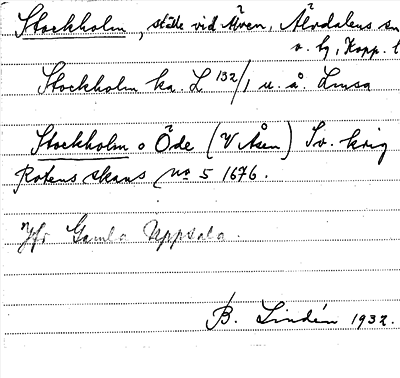 Stockholm, ställe vid Älven, Älvdalens sn
o. by, Kopp. l
Stockholm ka. L 132/1 u. å. Lmsa
Stockholm o Öde (V Åsen) Sv. krig
Rotens skans no 5 1676.
Jfr Gamla Uppsala.
B. Lindén 1932.